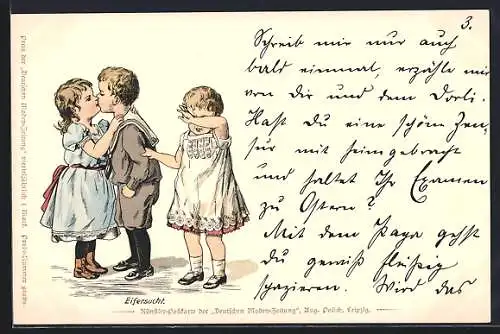 3.
Schreib mir nur auch
bald einmal, erzähle mir
von Dir und dem Dorli.
Hast du eine schöne Zen-
sur mit heimgebracht
und haltet Ihr Examen
zu Ostern?
Mit dem Papa gehst
du gewiß fleißig
spazieren. Wird das
Eifersucht.
Künstler-Postkarte der „Deutschen Moden-Zeitung", Aug. Polich, Leipzig.
Preis der „Deutschen Moden-Zeitung" vierteljährlich 1 Mark. Probe-Nummern gratis.